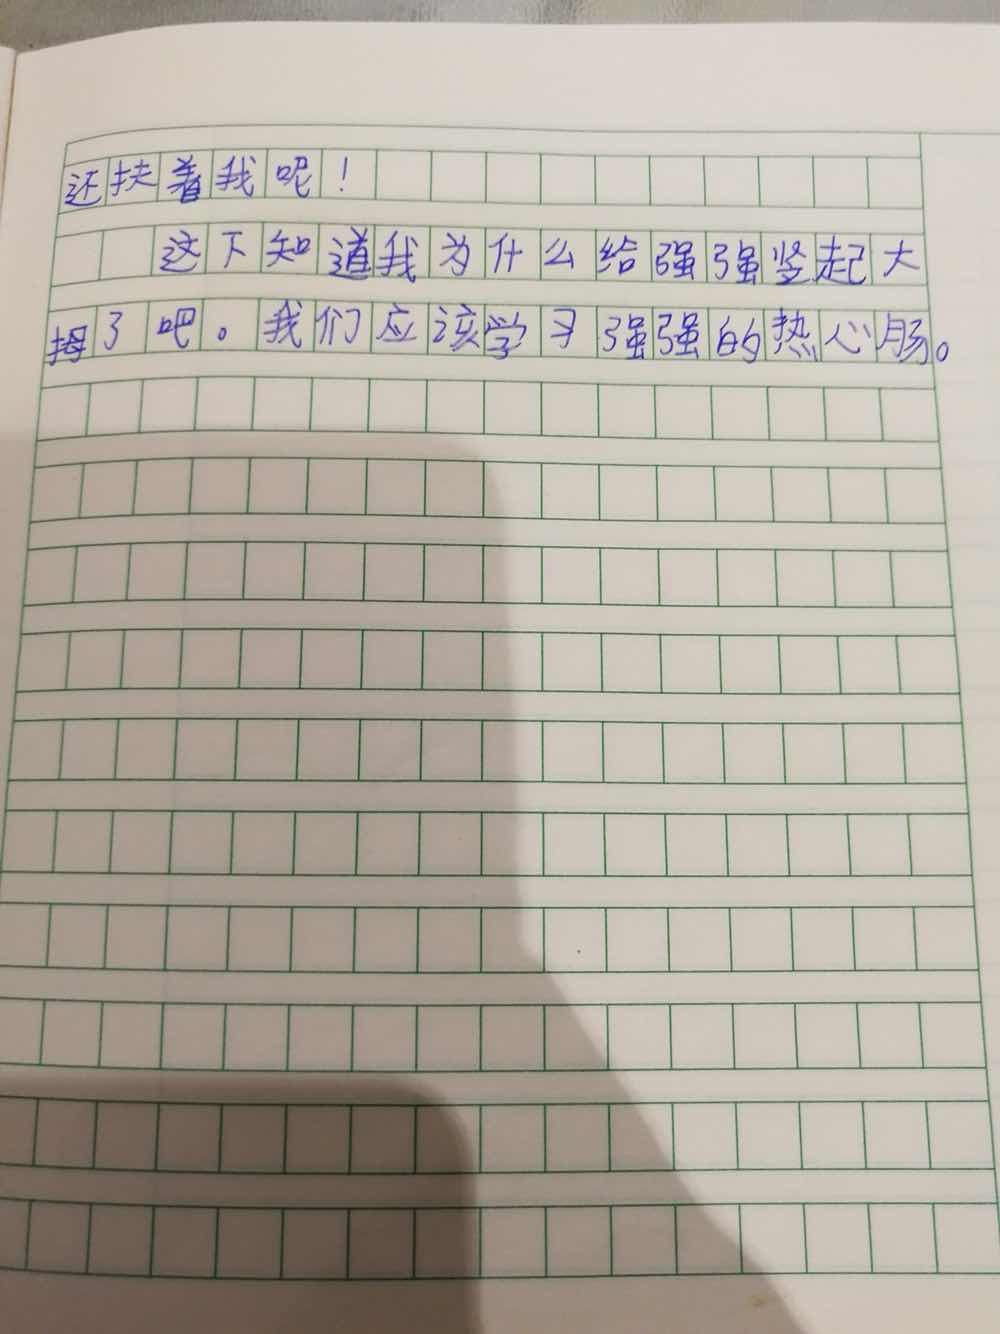 还扶着我呢！
这下知道我为什么给强强竖起大
拇了吧。我们应该学习强强的热心肠。